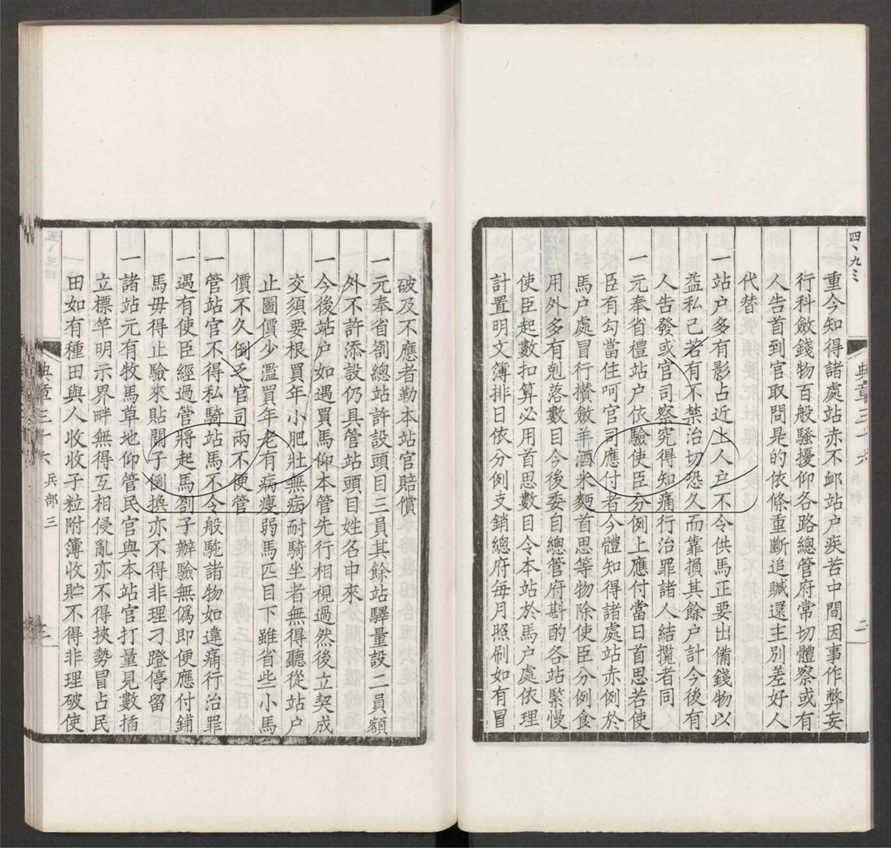 重今知得諸處站赤不邮站户疾苦中間因事作弊妄
行科斂錢物百般騷擾仰各路總管府常切體察或有
人告首到官取問是的依條重斷追贓還主別差好人
代替
一站户多有影占近上人户不令供馬正要出備錢物以
益私己若有不禁治切恐久而靠損其餘户計今後有
人告發或官司察究得知痛行治罪諸人結攬者同
一元奉省禮站户依驗使臣分例上應付當日首思若使
臣有勾當住呵官司應付者今體知得諸處站赤例於
馬户處冒行攢斂羊酒米麵首思等物除使臣分例食
用外多有剋落數目今後委自總管府斟酌各站緊慢
使臣起數扣算必用首思數目令本站於馬户處依理
計置明文簿排日依分例支銷總府每月照刷如有冒
破及不應者勒本站官賠償
一元奉省劄總站許設頭目三員其餘站驛量設二員額
外不許添設仍具管站頭目姓名申來
一今後站户如遇買馬仰本管先行相視過然後立契成
交須要根買年小肥壯無病耐騎坐者無得聽從站户
止圖價少濫買年老有病瘦弱馬匹目下雖省些小馬
價不久倒乏官司兩不便管
一管站官不得私騎站馬不令般馳諸物如違痛行治罪
一遇有使臣經過管將起馬劄子辦驗無僞即便應付鋪
馬毋得止驗來貼關子倒換亦不得非理刁蹬停留
一諸站元有牧馬草地仰管民官與本站官打量見數插
立標竿明示界畔無得互相侵亂亦不得挾勢冒占民
田如有種田與人收收子粒附簿收貯不得非理破使
典章三十六 兵部三 三